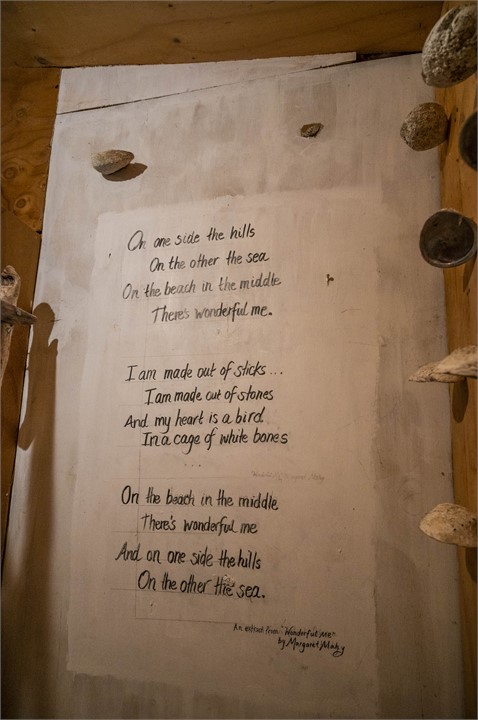 On one side the hills
On the other the sea
On the beach in the middle
There's wonderful me.
I am made out of sticks...
I am made out of stones
And my heart is a bird
In a cage of white bones
...
On the beach in the middle
There's wonderful me
And on one side the hills
On the other the sea.
An extract from "Wonderful Me"
by Margaret Mahy